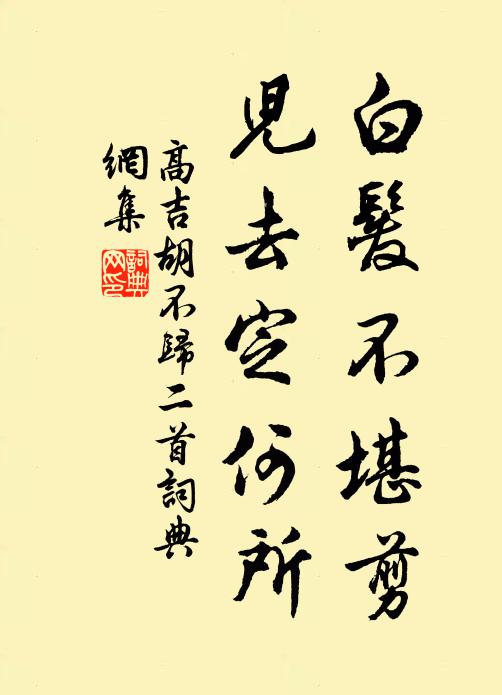 白髮不堪剪
兒去定何所
高吉胡不歸二首詞典
網集
詞典
网印